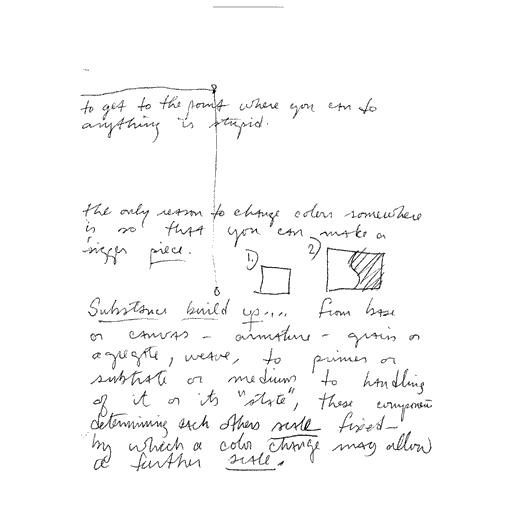 to get to the point where you can do
anything is stupid.
the only reason to change colors somewhere
is so that you can make a
bigger piece.
1)
2)
Substance build up.... from base
or canvas – armature – grain or
agregate, weave, to primer or
substrate or medium to handling
of it or its "state", these component
determining each others scale fixed–
by which a color change may allow
a further scale.